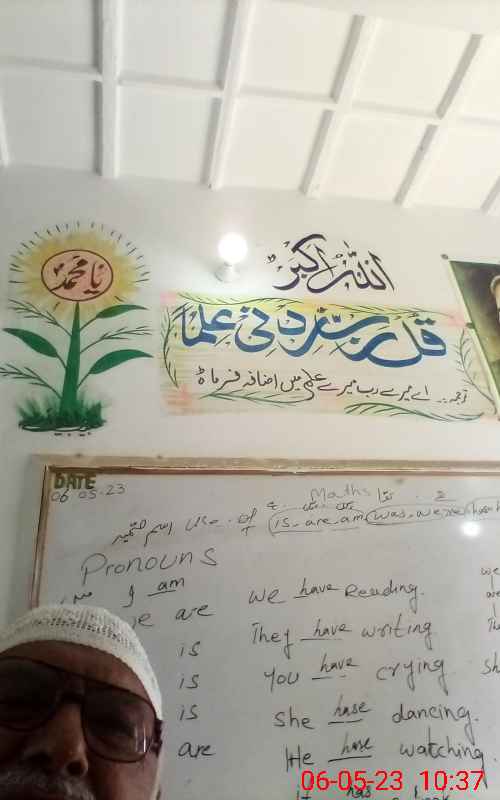 اللہ اکبر
یا محمدؐ
قُل رَبِّ زِدْنِی عِلْمًا
ترجمہ۔ اے میرے رب میرے علم میں اضافہ فرما
DATE
06-05-23
Maths
is - are - am was - were
اسم ضمیر
Pronouns
I am
we have Reading.
are
They have writing
is
You have crying
is
She hase dancing.
is
He hase watching.
are
06-05-23 10:37